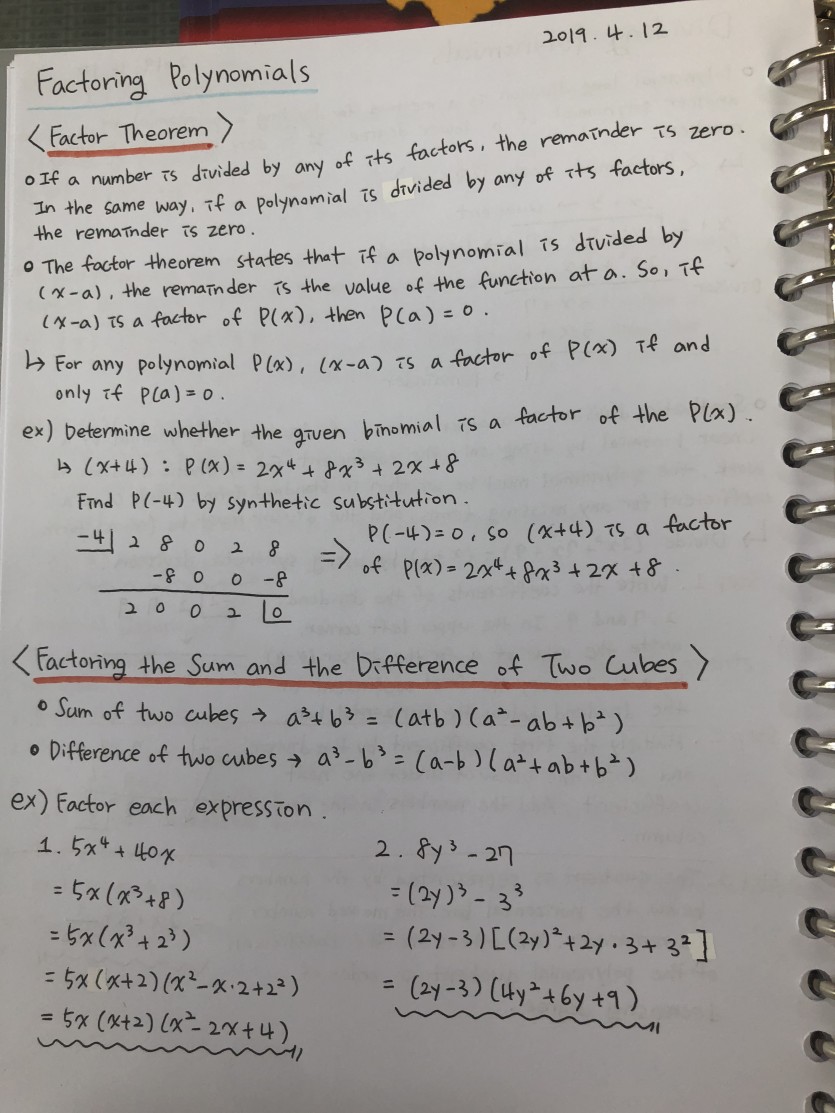 2019. 4. 12
Factoring Polynomials
<Factor Theorem>
o If a number is divided by any of its factors, the remainder is zero.
In the same way, if a polynomial is divided by any of its factors,
the remainder is zero.
o The factor theorem states that if a polynomial is divided by
(x-a), the remainder is the value of the function at a. So, if
(x-a) is a factor of P(x), then P(a) = 0.
↳ For any polynomial P(x), (x-a) is a factor of P(x) if and
only if P(a) = 0.
ex) Determine whether the given binomial is a factor of the P(x).
↳ (x+4) : P(x) = 2x⁴ + 8x³ + 2x + 8
Find P(-4) by synthetic substitution.
-4| 2 8 0 2 8
-8 0 0 -8
2 0 0 2 |0
=> P(-4)=0, so (x+4) is a factor
of P(x) = 2x⁴ + 8x³ + 2x + 8.
<Factoring the Sum and the Difference of Two Cubes>
o Sum of two cubes → a³ + b³ = (a+b)(a² - ab + b²)
o Difference of two cubes → a³ - b³ = (a-b)(a² + ab + b²)
ex) Factor each expression.
1. 5x⁴ + 40x
= 5x(x³+8)
= 5x(x³ + 2³)
= 5x(x+2)(x² - x·2 + 2²)
= 5x(x+2)(x² - 2x + 4)
2. 8y³ - 27
= (2y)³ - 3³
= (2y-3)[(2y)² + 2y·3 + 3²]
= (2y-3)(4y² + 6y + 9)